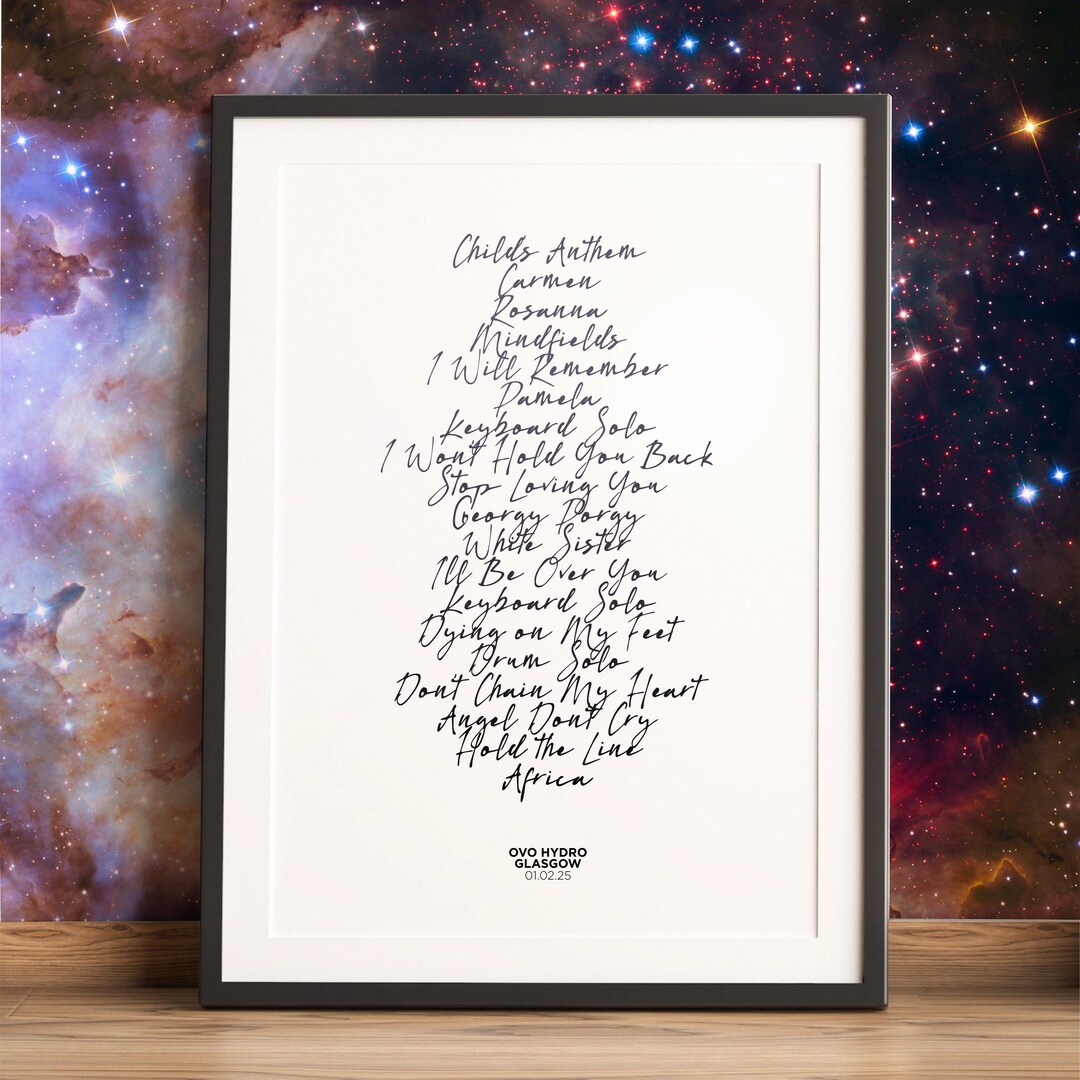 Child's Anthem
Carmen
Rosanna
Mindfields
I Will Remember
Pamela
Keyboard Solo
I Won't Hold You Back
Stop Loving You
Georgy Porgy
White Sister
I'll Be Over You
Keyboard Solo
Dying on My Feet
Drum Solo
Don't Chain My Heart
Angel Don't Cry
Hold the Line
Africa
OVO HYDRO
GLASGOW
01.02.25